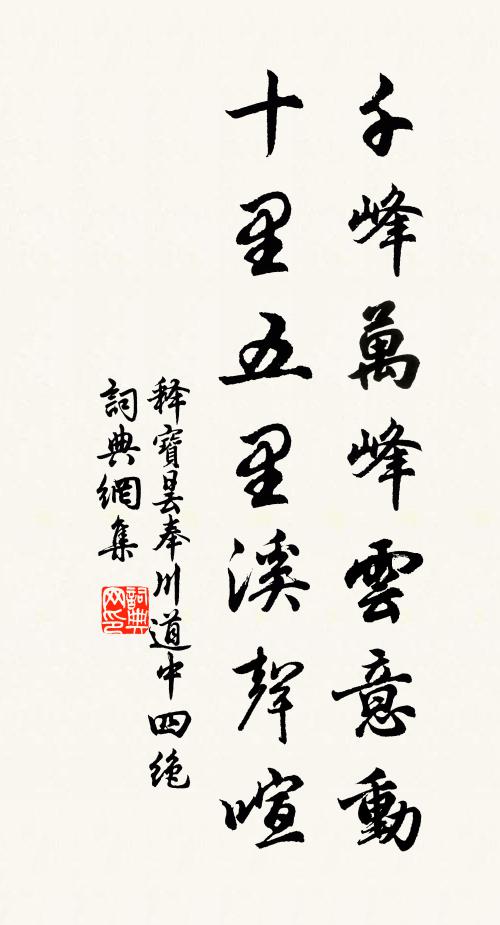 千峰萬峰雲意動
十里五里溪聲喧
释寶曇奉川道中四绝
詞典網集
詞典网印